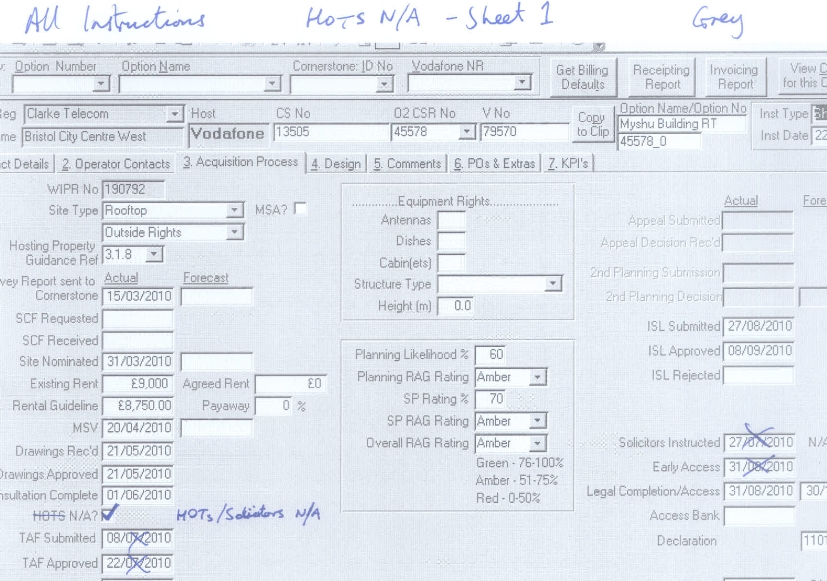 All Instructions HOTS N/A - Sheet 1 Grey
Option Number Option Name Cornerstone: ID No Vodafone NR
Get Billing Defaults Receipting Report Invoicing Report View
for this
Clarke Telecom Host CS No O2 CSR No V No Copy to Clip Option Name/Option No Inst Type
Bristol City Centre West Vodafone 13505 45578 79570 Myshu Building RT Inst Date 22
45578_0
ct Details 2. Operator Contacts 3. Acquisition Process 4. Design 5. Comments 6. POs & Extras 7. KPI's
WIPR No 190792
Site Type Rooftop MSA?
Outside Rights
Hosting Property Guidance Ref 3.1.8
vey Report sent to Cornerstone Actual Forecast
15/03/2010
SCF Requested
SCF Received
Site Nominated 31/03/2010
Existing Rent £9,000 Agreed Rent £0
Rental Guideline £8,750.00 Payaway 0 %
MSV 20/04/2010
Drawings Rec'd 21/05/2010
Drawings Approved 21/05/2010
nsultation Complete 01/06/2010
HOTS N/A? HOTs/Solicitors N/A
TAF Submitted 08/07/2010
TAF Approved 22/07/2010
Equipment Rights
Antennas
Dishes
Cabin(ets)
Structure Type
Height (m) 0.0
Planning Likelihood % 60
Planning RAG Rating Amber
SP Rating % 70
SP RAG Rating Amber
Overall RAG Rating Amber
Green - 76-100%
Amber - 51-75%
Red - 0-50%
Actual Fore
Appeal Submitted
Appeal Decision Rec'd
2nd Planning Submission
2nd Planning Decision
ISL Submitted 27/08/2010
ISL Approved 08/09/2010
ISL Rejected
Solicitors Instructed 27/07/2010 N/A
Early Access 31/08/2010
Legal Completion/Access 31/08/2010 30/
Access Bank
Declaration 1101